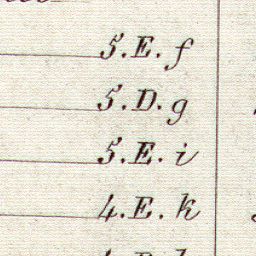 5.E.f
5.D.g
5.E.i
4.E.k